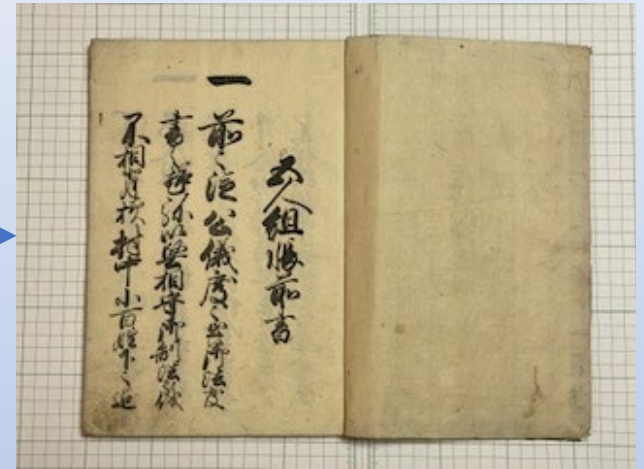 五人組帳前書
一
前々従公儀度々出御法度
書之趣弥以堅相守御制法儀
不相背様村中小百姓下々迄